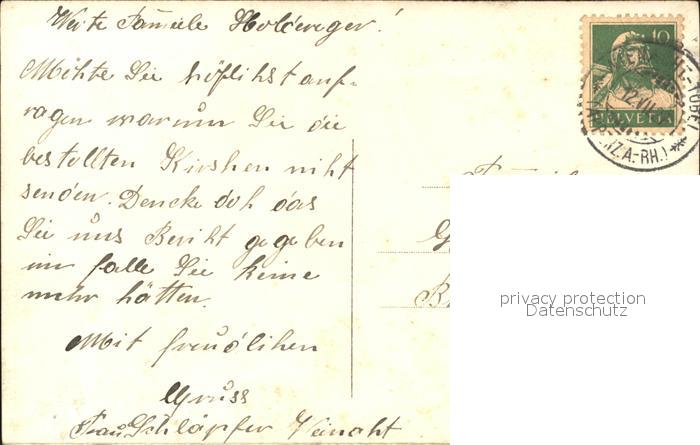 Werte Famiele Holdereger!
Möhte Sie höflihst anf-
ragen warum Sie die
bestellten Kirshen niht
senden. Dencke doh das
Sie uns Beriht gegeben
im falle Sie keine
mehr hätten.
Mit freudlihen
Gruss
Frau Schläpfer
10
HELVETIA
12.VII
A.-RH.)
privacy protection
Datenschutz